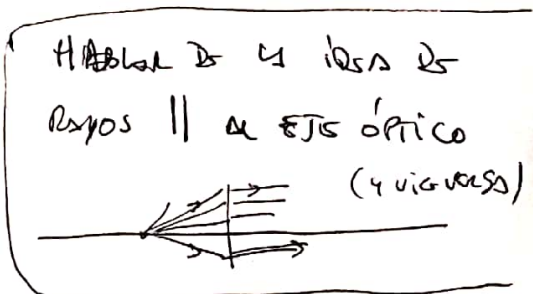 HABLAR DE LA IDEA DE
RAYOS || AL EJE ÓPTICO
(y viceversa)